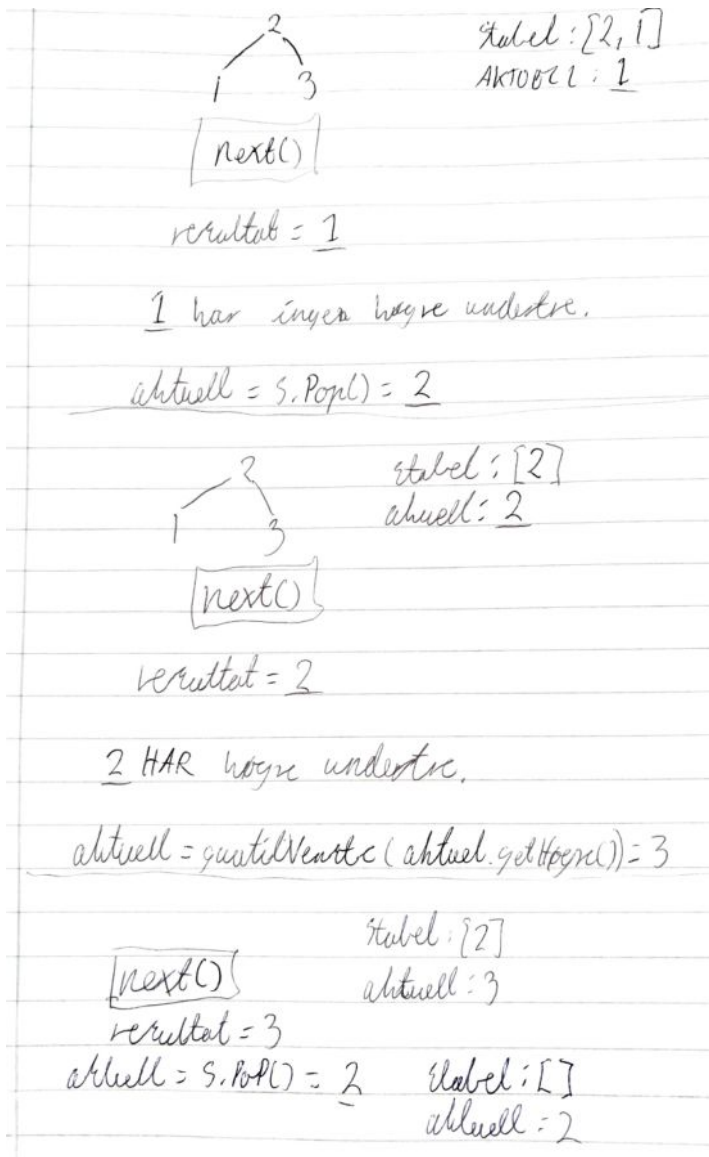 2
1 3
Stabel: [2, 1]
AKTUELL: 1
next()
resultat = 1
1 har ingen høyre undertre.
aktuell = S.Pop() = 2
2
1 3
stabel: [2]
akuell: 2
next()
resultat = 2
2 HAR høyre undertre.
aktuell = gåutilVenstre (aktuel.getHøyre()) = 3
Stabel: [2]
next() aktuell: 3
resultat = 3
aktuell = S.POP() = 2 Stabel: []
aktuell = 2